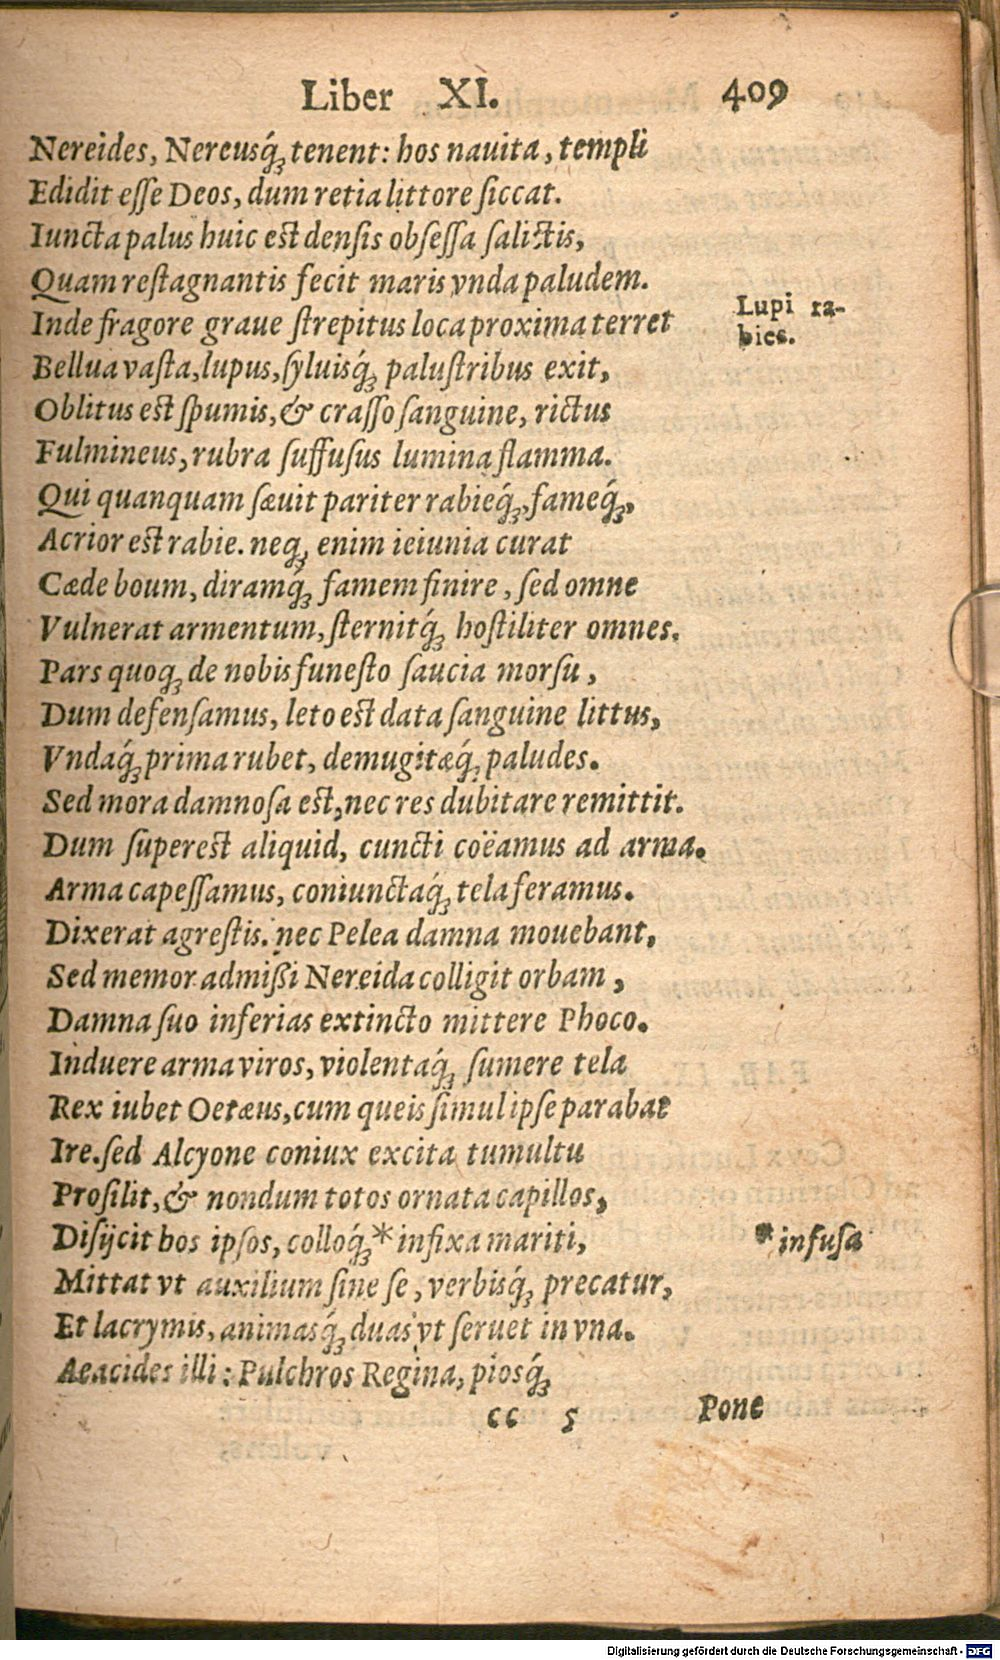 Liber XI. 409
Nereides, Nereusq́ꝫ tenent: hos nauita, templi
Edidit eſſe Deos, dum retia littore ſiccat.
Iuncta palus huic est denſis obſeſſa ſalictis,
Quam reſtagnantis fecit maris vnda paludem.
Inde fragore graue ſtrepitus loca proxima terret
Lupi ra-
bies.
Bellua vaſta, lupus, ſyluisq́ꝫ paluſtribus exit,
Oblitus est ſpumis, & craſſo ſanguine, rictus
Fulmineus, rubra ſuffuſus lumina flamma.
Qui quanquam sæuit pariter rabieq́ꝫ, fameq́ꝫ,
Acrior est rabie. neqꝫ enim ieiunia curat
Cæde boum, diramq́ꝫ famem finire, ſed omne
Vulnerat armentum, ſternitq́ꝫ hoſtiliter omnes.
Pars quoqꝫ de nobis funeſto ſaucia morſu,
Dum defenſamus, leto est data ſanguine littus,
Vndaq́ꝫ prima rubet, demugitæq́ꝫ paludes.
Sed mora damnoſa est, nec res dubitare remittit.
Dum ſuperest aliquid, cuncti coëamus ad arma.
Arma capeſſamus, coniunctaq́ꝫ tela feramus.
Dixerat agreſtis. nec Pelea damna mouebant,
Sed memor admißi Nereida colligit orbam,
Damna ſuo inferias extincto mittere Phoco.
Induere arma viros, violentaq́ꝫ ſumere tela
Rex iubet Oetæus, cum queis ſimul ipſe parabat
Ire. ſed Alcyone coniux excita tumultu
Proſilit, & nondum totos ornata capillos,
Diſijcit hos ipſos, colloq́ꝫ * infixa mariti,
* infuſa
Mittat vt auxilium ſine ſe, verbisq́ꝫ precatur,
Et lacrymis, animasq́ꝫ duas vt ſeruet in vna.
Aeacides illi: Pulchros Regina, piosq́ꝫ
cc 5 Pone
Digitalisierung gefördert durch die Deutsche Forschungsgemeinschaft - DFG